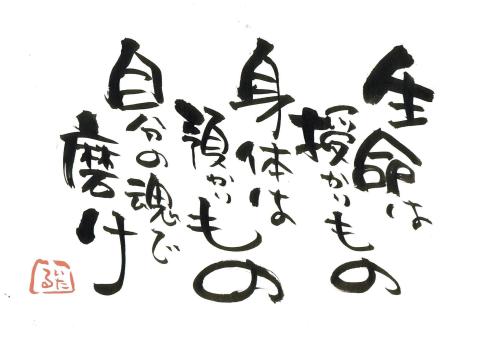 生命は
授かいもの
身体は
預かいもの
自分の魂で
磨け
いた
る